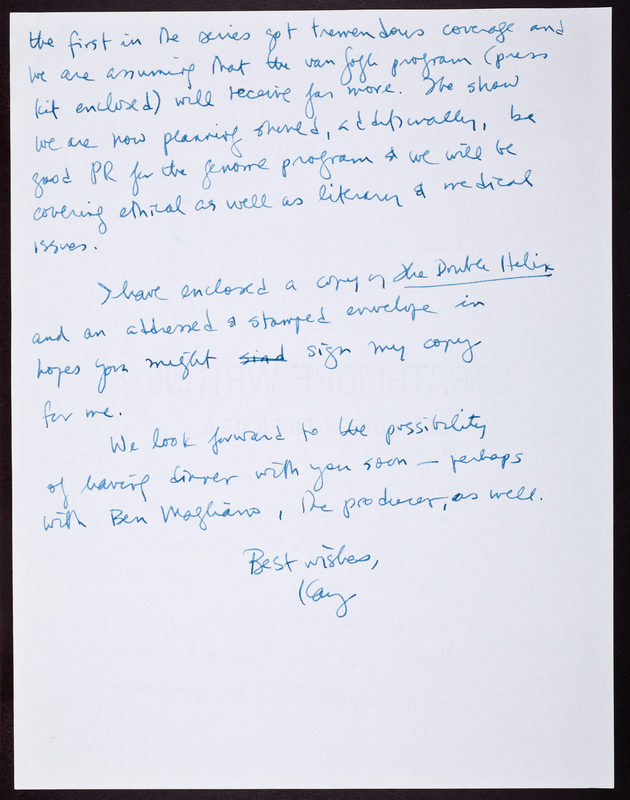 the first in the series got tremendous coverage and
we are assuming that the van Gogh program (press
kit enclosed) will receive far more. The show
we are now planning should, additionally, be
good PR for the genome program & we will be
covering ethical as well as literary & medical
issues.
I have enclosed a copy of The Double Helix
and an addressed & stamped envelope in
hopes you might sign my copy
for me.
We look forward to the possibility
of having dinner with you soon — perhaps
with Ben Magliano, the producer, as well.
Best wishes,
Kay